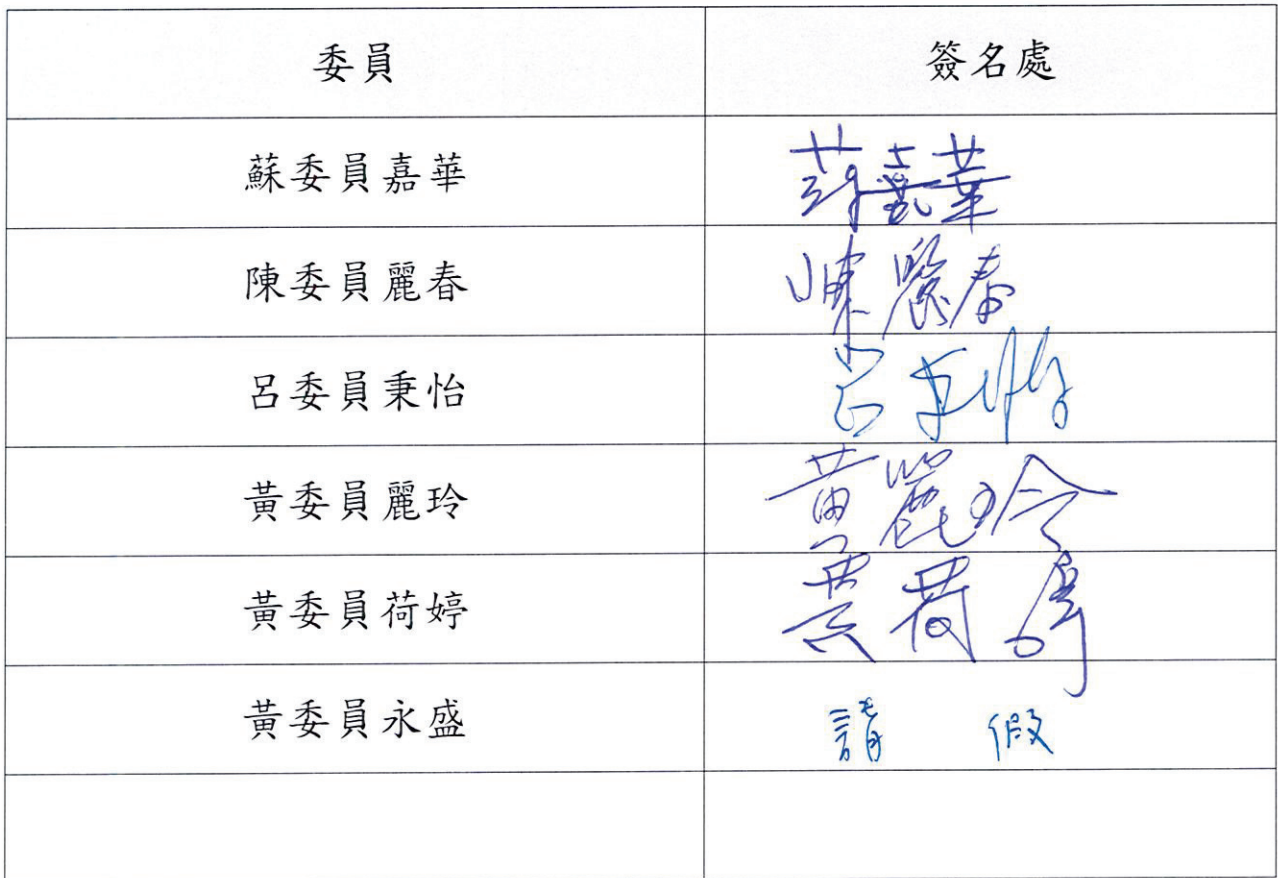 委員 簽名處
蘇委員嘉華 蘇嘉華
陳委員麗春 陳麗春
呂委員秉怡 呂秉怡
黃委員麗玲 黃麗玲
黃委員荷婷 黃荷婷
黃委員永盛 請 假